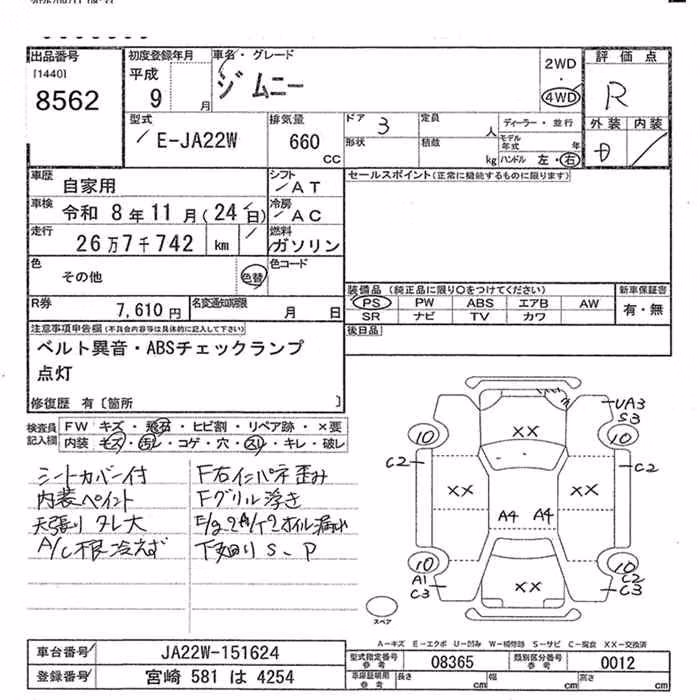 出品番号
[1440]
8562
初度登録年月
平成
9 月
車名・グレード
ジムニー
2WD
・
4WD
評価点
R
外装 内装
型式
E-JA22W
排気量
660
CC
ドア 3
定員 人
形状
積載 kg
ディーラー・並行
モデル年式 年
ハンドル 左・右
車歴
自家用
シフト
AT
車検 令和 8年 11月(24日)
冷房
AC
走行 26万7千742 km
燃料
ガソリン
色 その他 色替
色コード
R券 7,610円
名変通知期限 月 日
セールスポイント(正常に機能するものに限ります)
装備品(純正品に限り○をつけてください)
PS PW ABS エアB AW
SR ナビ TV カワ
新車保証書
有・無
後日品
注意事項申告欄(不具合内容等は具体的に記入して下さい)
ベルト異音・ABSチェックランプ
点灯
修復歴 有〔箇所 〕
検査員記入欄
FW キズ・飛石・ヒビ割・リペア跡・×要
内装 キズ・汚レ・コゲ・穴・スリ・キレ・破レ
シートカバー付
内装ペイント
天張りタレ大
A/C不良冷えず
F右インパネ歪み
Fグリル浮き
E/g
オイル漏れ
下廻りS、P
UA3
S3
10
10
C2
C2
XX
XX
XX
A4 A4
10
10
A1
C3
C2
C3
XX
スペア
A-キズ E-エクボ U-凹み W-補修跡 S-サビ C-腐食 XX-交換済
車台番号 JA22W-151624
登録番号 宮崎 581 は 4254
型式指定番号
参考
08365
類別区分番号
参考
0012
車庫証明用
参考
長さ cm 幅 cm 高さ cm